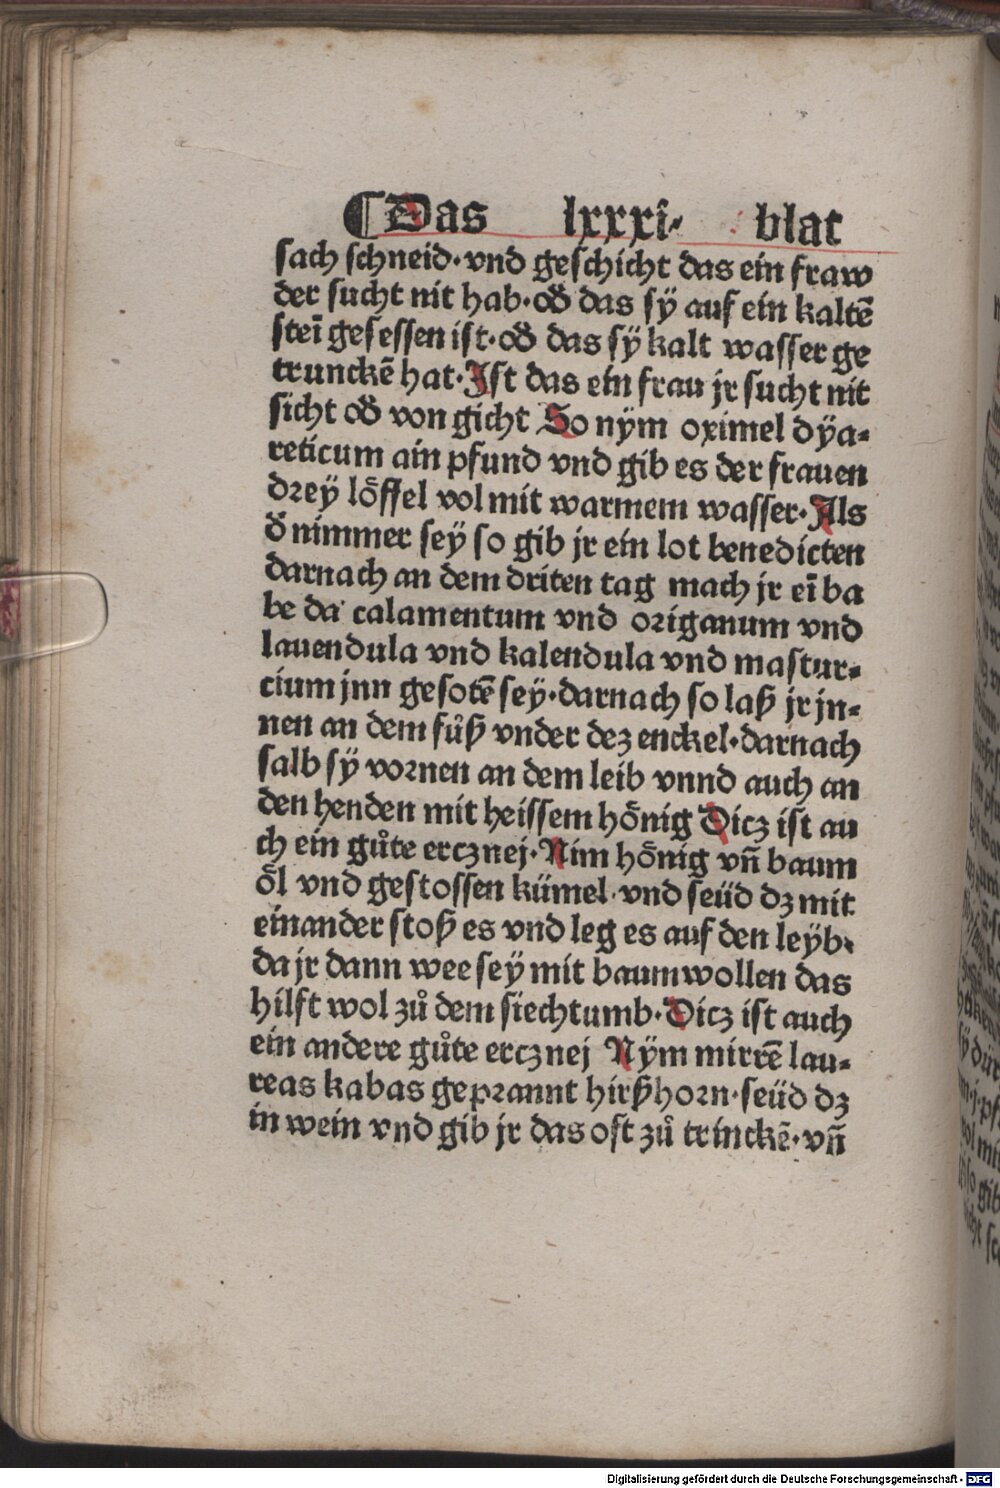 ¶Das lxxxi· blat
sach schneid·vnd geschicht das ein fraw
der sucht nit hab·od̄ das sÿ auf ein kaltē
steī gesessen ist·od̄ das sÿ kalt wasser ge
trunckē hat·Ist das ein frau jr sucht nit
sicht od̄ von gicht So nÿm oximel dÿa⸗
reticum ain pfund vnd gib es der frauen
dreÿ loͤffel vol mit warmem wasser·Als
d̄ nimmer seÿ so gib jr ein lot benedicten
darnach an dem driten tag mach jr eī ba
be da calamentum vnd origanum vnd
lauendula vnd kalendula vnd mastur⸗
cium jnn gesotē seÿ·darnach so laß jr jn⸗
nen an dem fuͦß vnder dez enckel·darnach
salb sÿ vornen an dem leib vnnd auch an
den henden mit heissem hoͤnig Dicz ist au
ch ein guͦte ercznej·Nim hoͤnig vn̄ baum
oͤl vnd gestossen kümel·vnd seüd dz mit
einander stoß es vnd leg es auf den leÿb·
da jr dann wee seÿ mit baumwollen das
hilft wol zuͦ dem siechtumb·Dicz ist auch
ein andere guͦte ercznej Nÿm mirrē lau⸗
reas kabas geprannt hirßhorn·seüd dz
in wein vnd gib jr das oft zuͦ trinckē·vn̄
Digitalisierung gefördert durch die Deutsche Forschungsgemeinschaft - DFG